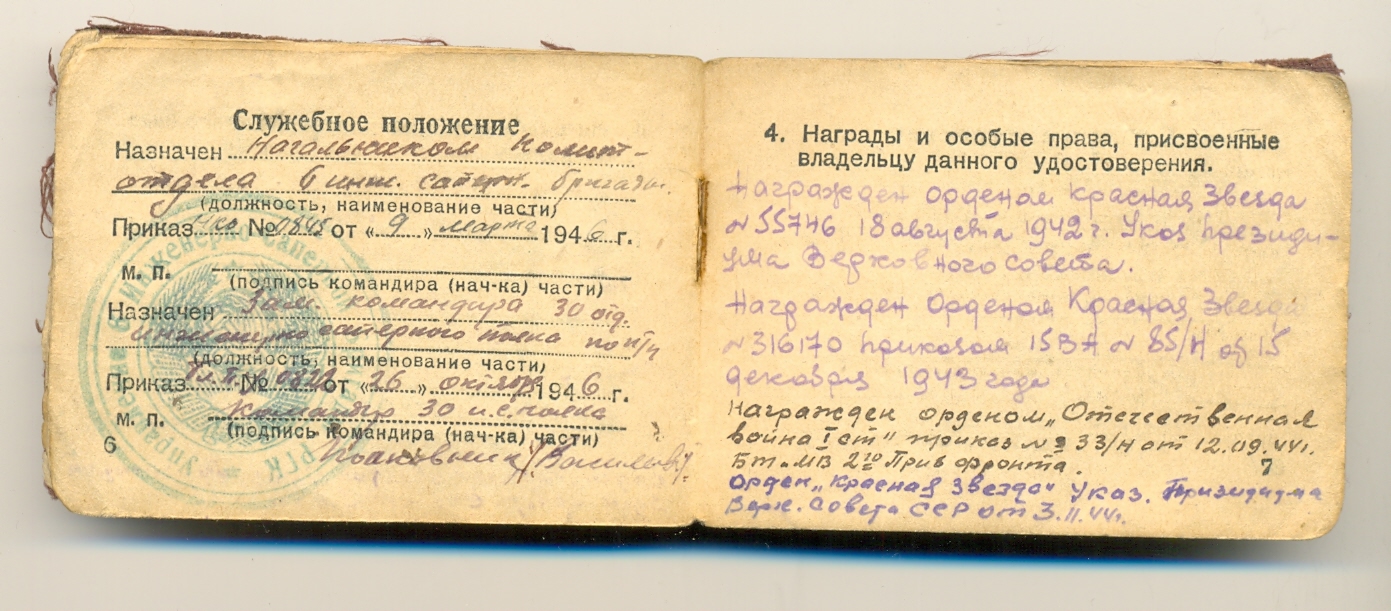 Служебное положение
Назначен Начальником Полит-
отдела 6 инж. саперн. бригады.
(должность, наименование части)
Приказ НКО № 0845 от «9» марта 1946 г.
м. п.
(подпись командира (нач-ка) части)
Назначен Зам. командира 30 отд.
инженерно саперного полка по п/ч
(должность, наименование части)
Приказ № 0322 от «26» октября 1946 г.
Командир 30 и.с. полка
м. п.
(подпись командира (нач-ка) части)
Полковник (Васильев).
6
4. Награды и особые права, присвоенные
владельцу данного удостоверения.
Награжден орденом Красная Звезда
№ 55746 18 августа 1942 г. Указ Президи-
ума Верховного совета.
Награжден Орденом Красная Звезда
№ 316170 Приказом 15ВА № 85/Н от 15
декабря 1943 года
Награжден орденом „Отечественная
война I ст" приказ № 33/Н от 12.09.44г.
Бт. и МВ 2го Приб фронта.
7
Орден „Красная Звезда" Указ. Призидиума
Верх. Совета СССР от 3.11.44г.